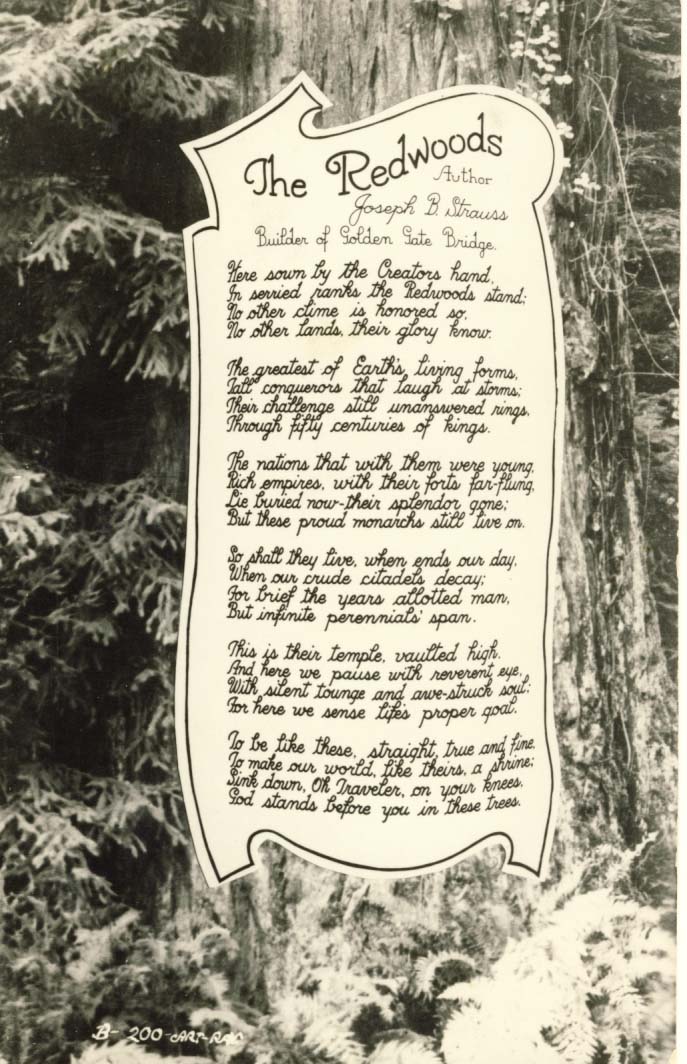 The Redwoods
Author
Joseph B. Strauss
Builder of Golden Gate Bridge.
Here sown by the Creators hand,
In serried ranks the Redwoods stand;
No other clime is honored so,
No other lands, their glory know.
The greatest of Earth's living forms,
Tall conquerors that laugh at storms;
Their challenge still unanswered rings,
Through fifty centuries of kings.
The nations that with them were young,
Rich empires, with their forts far-flung,
Lie buried now-their splendor gone;
But these proud monarchs still live on.
So shall they live, when ends our day,
When our crude citadels decay;
For brief the years allotted man,
But infinite perennials' span.
This is their temple, vaulted high,
And here we pause with reverent eye,
With silent tounge and awe-struck soul;
For here we sense life's proper goal.
To be like these, straight, true and fine,
To make our world, like theirs, a shrine;
Sink down, Oh Traveler, on your knees,
God stands before you in these trees.
B-200-ART-RAY